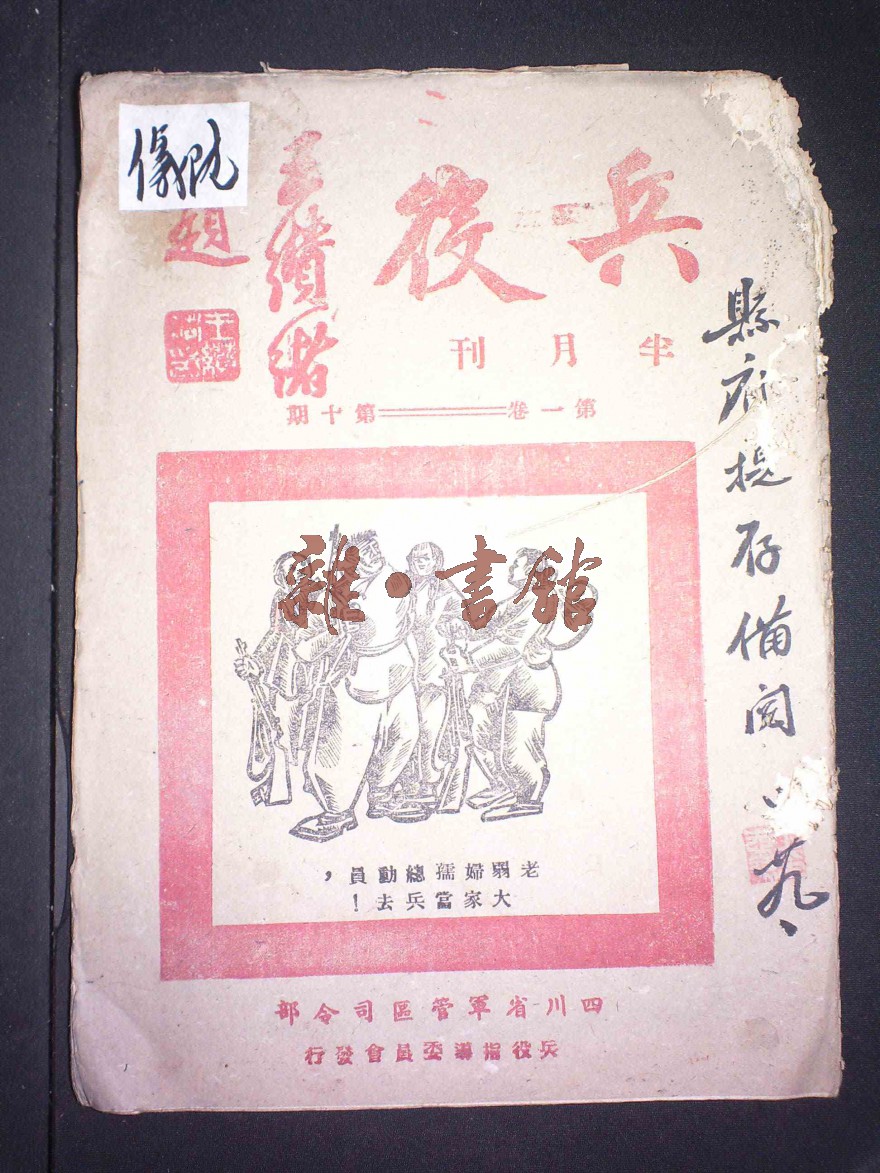 兵役
半月刊
第一卷══第十期
王纘緒
題
縣府提存備閱
雜·書館
老弱婦孺總動員，
大家當兵去！
四川省軍管區司令部
兵役指導委員會發行